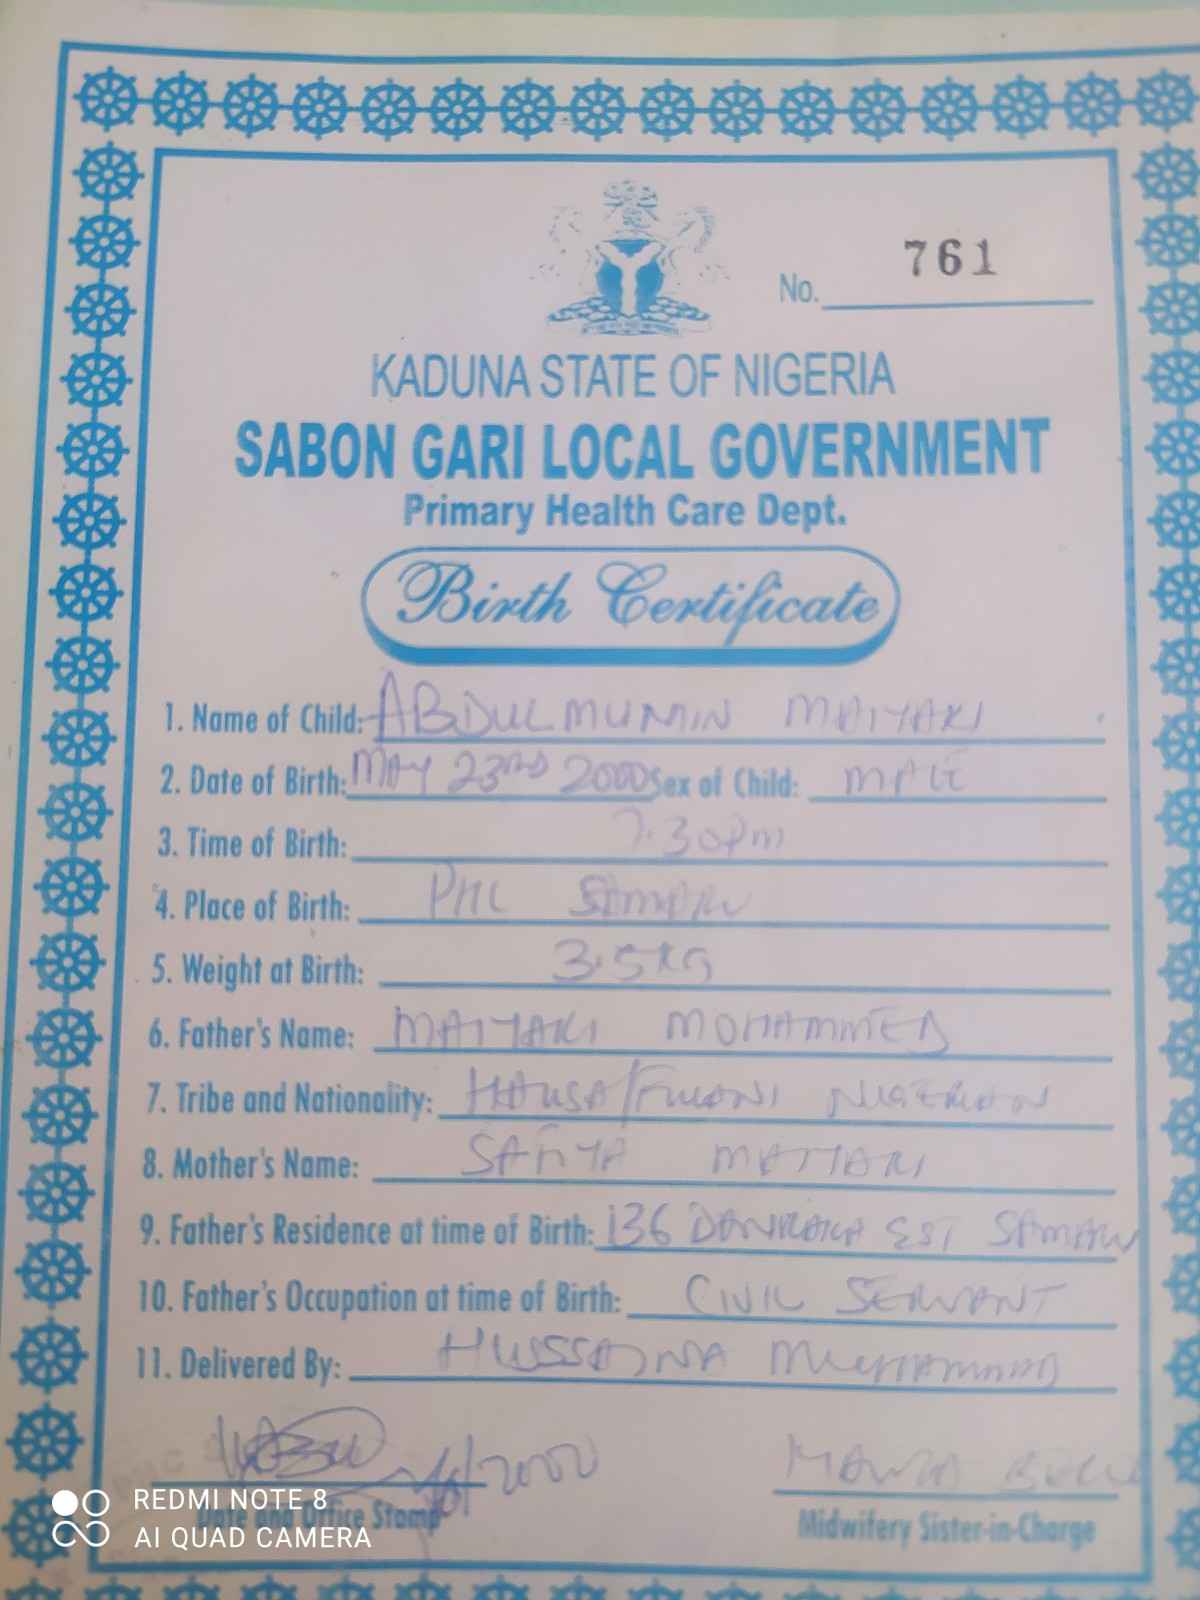 No. 761
KADUNA STATE OF NIGERIA
SABON GARI LOCAL GOVERNMENT
Primary Health Care Dept.
Birth Certificate
1. Name of Child: ABDULMUMIN MAIYAKI
2. Date of Birth: MAY 23RD 2000 Sex of Child: MALE
3. Time of Birth: 7.30pm
4. Place of Birth: PHC SAMARU
5. Weight at Birth: 3.5KG
6. Father's Name: MAIYAKI MOHAMMED
7. Tribe and Nationality: HAUSA/FULANI NIGERIAN
8. Mother's Name: SAFIYA MAIYAKI
9. Father's Residence at time of Birth: 136 DANRAKA EST SAMARU
10. Father's Occupation at time of Birth: CIVIL SERVANT
11. Delivered By: HUSSAINA MUHAMMAD
2000
Date and Office Stamp
Midwifery Sister-in-Charge
REDMI NOTE 8
AI QUAD CAMERA